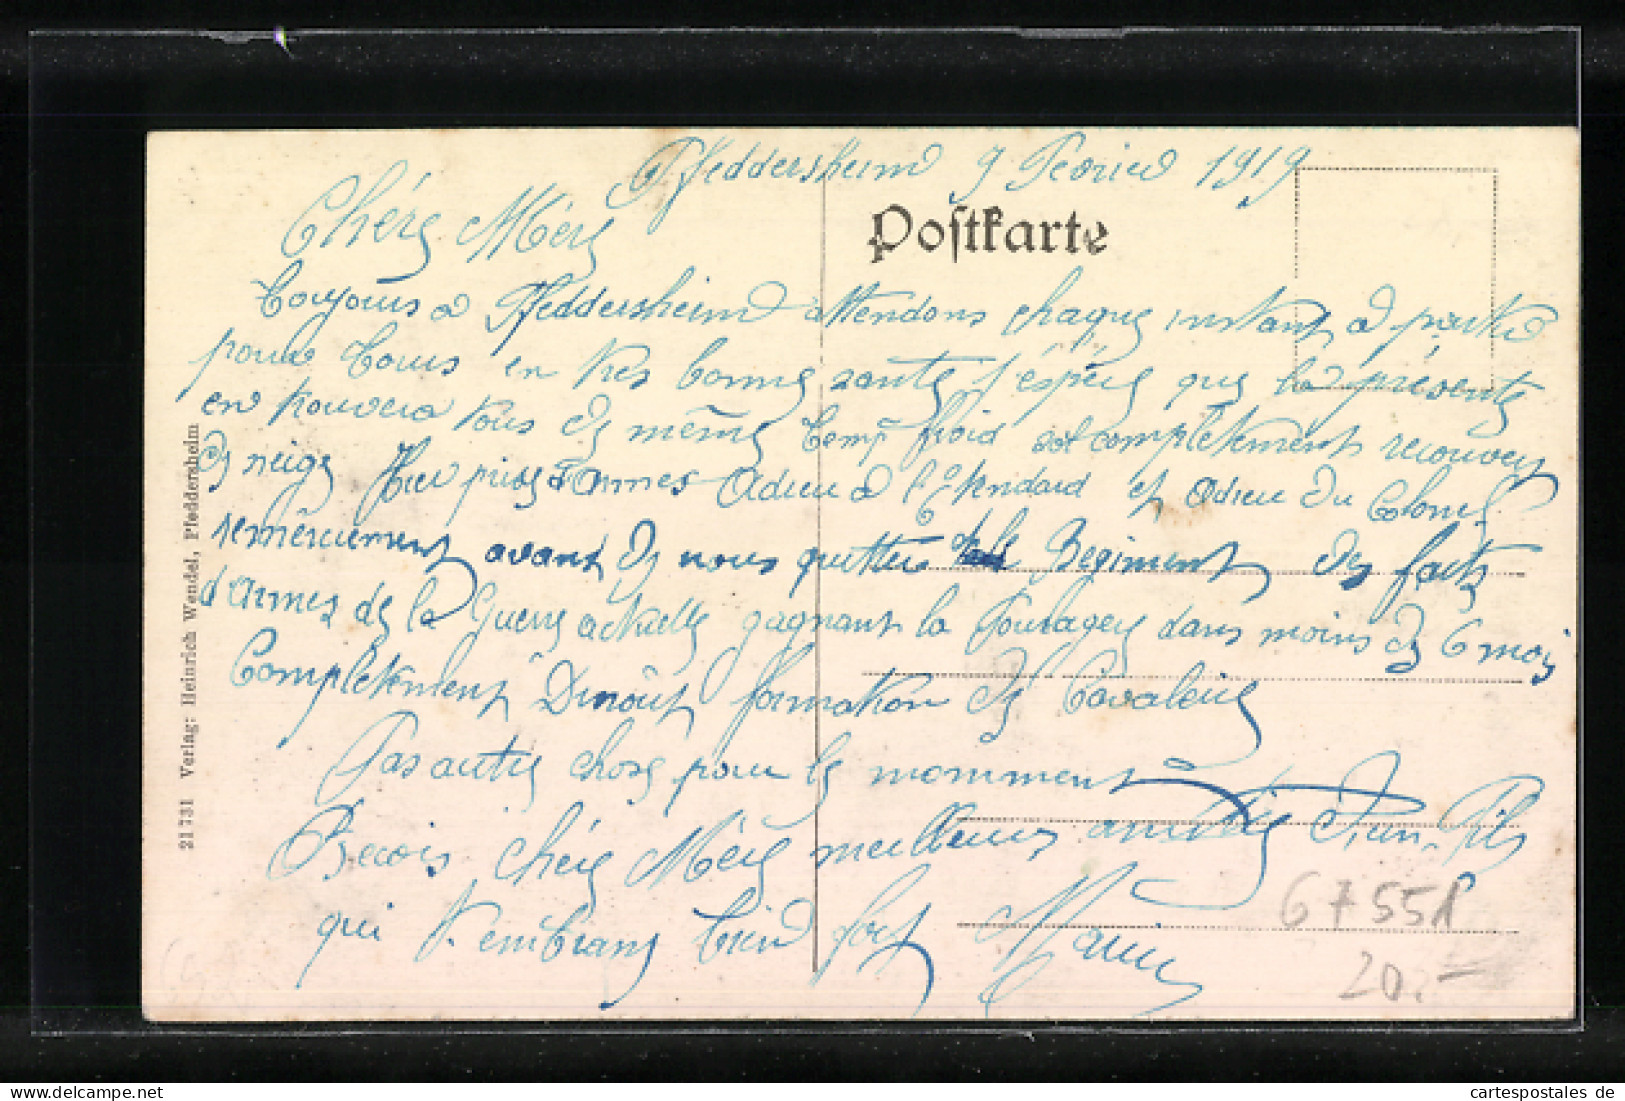 Pfeddersheim 9 Fevrier 1919
Postkarte
Chére Mére
Toujours a Pfeddersheim attendons chaque instant a partir
pour Tours en tres bonne sante j'éspére que la présente
en trouvera tous de même Temp froid sol completement recouvert
de neige Hier prise d'Armes Adieu a l'Etendard et Adieu du Colonel
remêrciement avant de nous quitter le Regiment des faits
d'Armes de la Guerre actuelle gagnant la Fouragere dans moins de 6 mois
Complétement Dinoût formation de Cavalerie
Pas autre chose pour le momment
Recois chére Mére meilleurs amitie d'un Fils
qui t'embrasse bien fort Marius
21 731 Verlag: Heinrich Wendel, Pfeddersheim
67551
20.-
cartespostales de